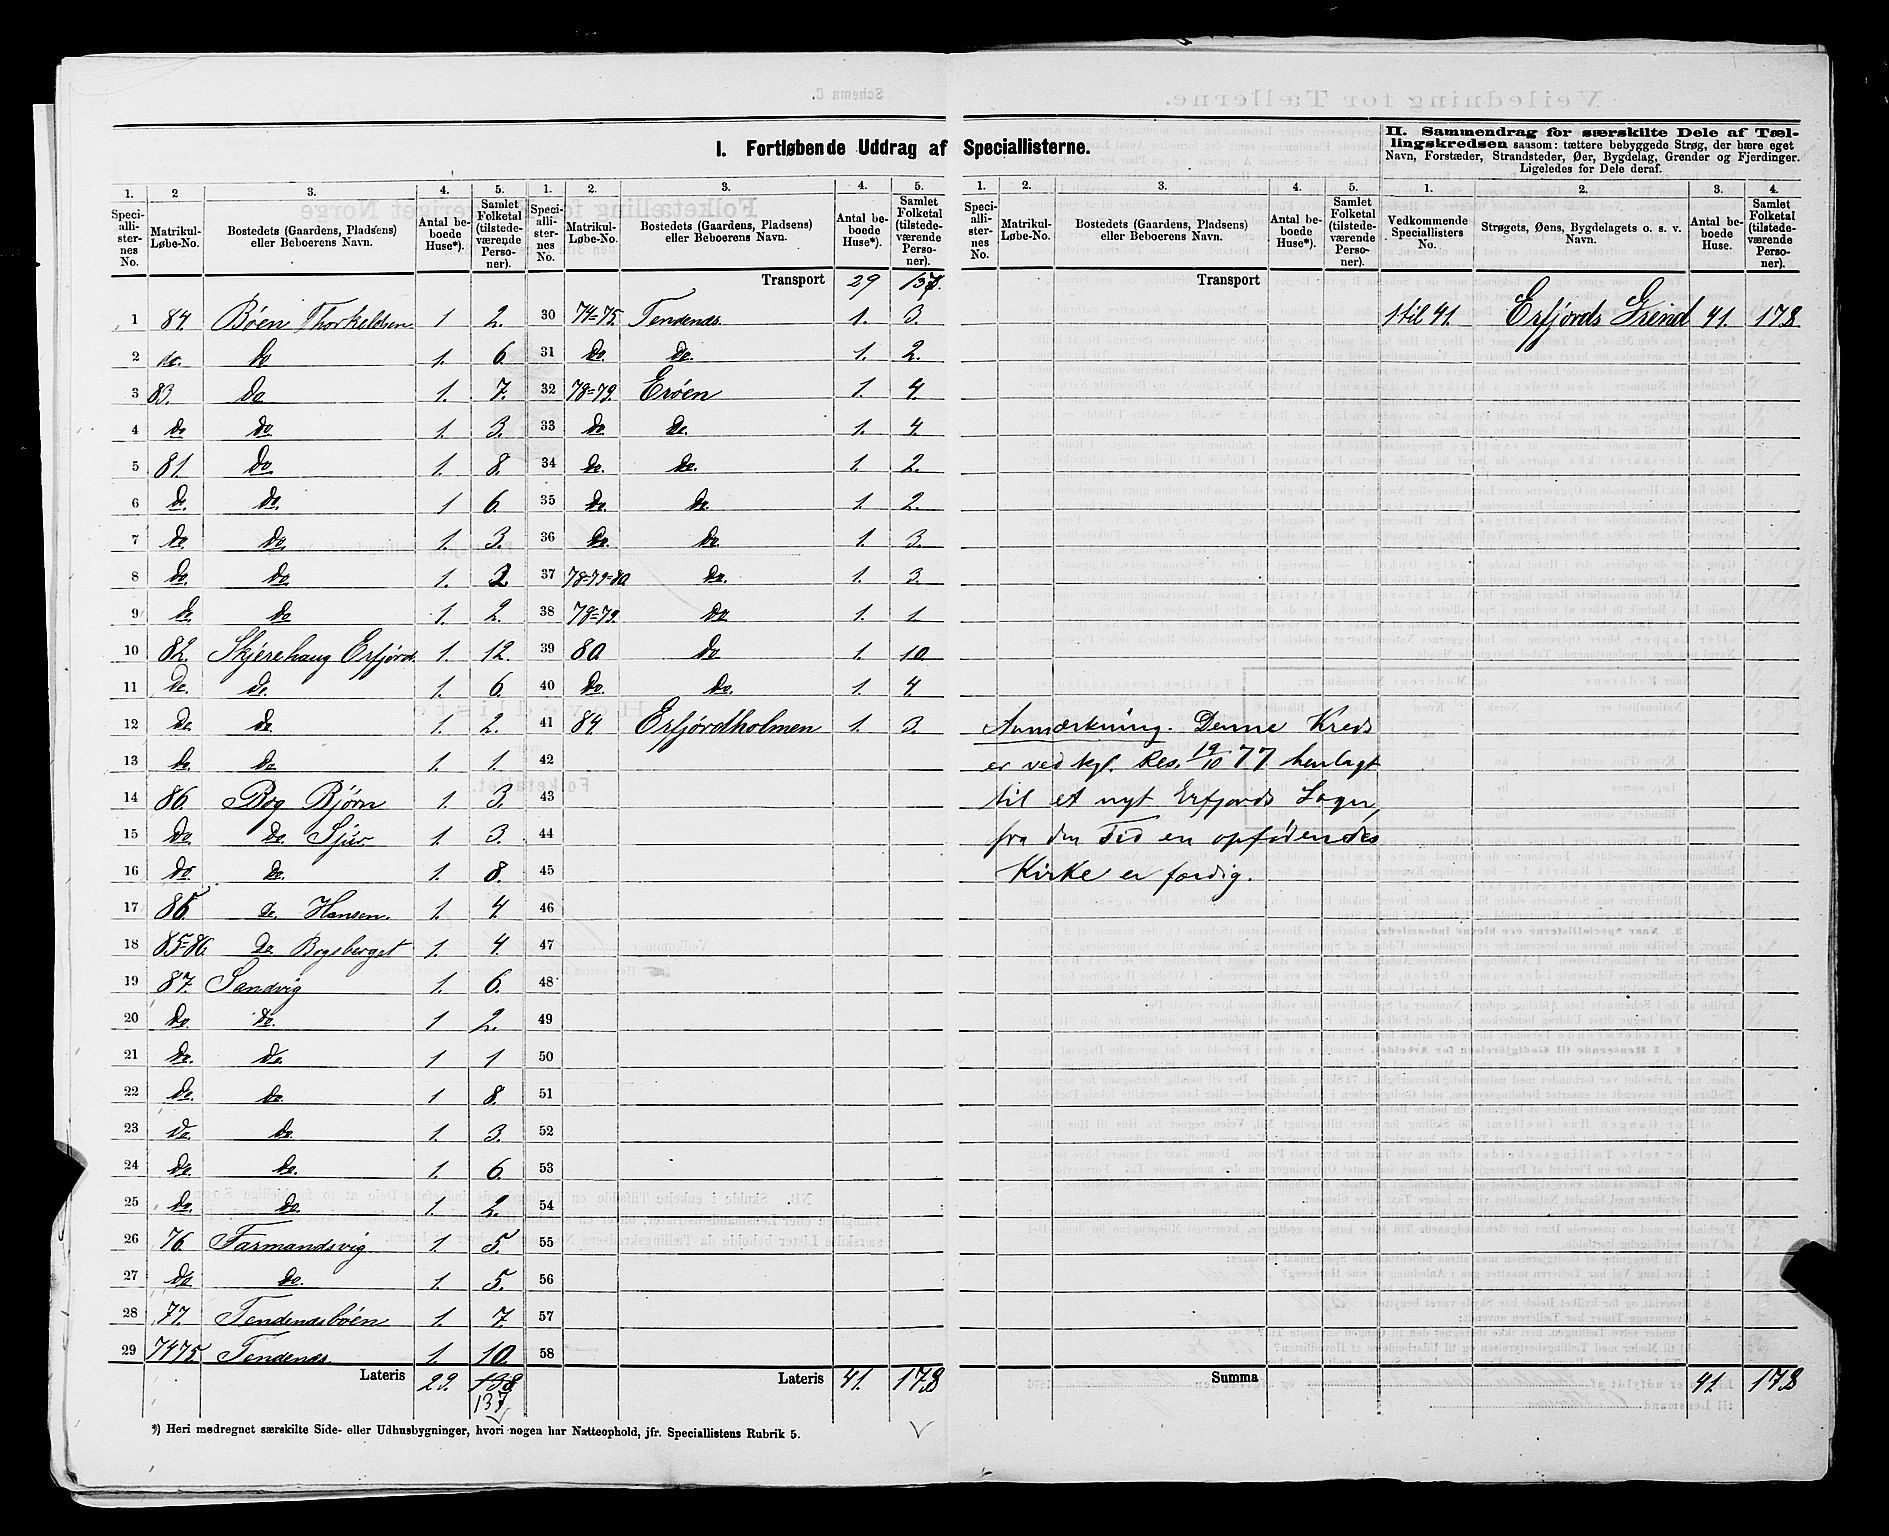 I. Fortløbende Uddrag af Speciallisterne.
II. Sammendrag for særskilte Dele af Tæl-
lingskredsen saasom: tættere bebyggede Strøg, der bære eget
Navn, Forstæder, Strandsteder, Øer, Bygdelag, Grender og Fjerdinger.
Ligeledes for Dele deraf.
1. 2 3. 4. 5. 1. 2. 3. 4. 5. 1. 2. 3. 4. 5. 1. 2. 3. 4.
Speciallisternes No. Matrikul-Løbe-No. Bostedets (Gaardens, Pladsens) eller Beboerens Navn. Antal beboede Huse*). Samlet Folketal (tilstedeværende Personer).
Speciallisternes No. Matrikul-Løbe-No. Bostedets (Gaardens, Pladsens) eller Beboerens Navn. Antal beboede Huse*). Samlet Folketal (tilstedeværende Personer).
Speciallisternes No. Matrikul-Løbe-No. Bostedets (Gaardens, Pladsens) eller Beboerens Navn. Antal beboede Huse*). Samlet Folketal (tilstedeværende Personer).
Vedkommende Speciallisters No. Strøgets, Øens, Bygdelagets o. s. v. Navn. Antal beboede Huse. Samlet Folketal (tilstedeværende Personer).
1 84. Bøen Thorkeldsen 1 2.
2 do. do 1. 6.
3 83. Do 1. 7.
4 do do 1. 3.
5 81. Do 1. 8.
6 do. Do. 1 6.
7 Do. Do 1. 3.
8 Do. Do. 1. 2.
9 do. Do 1. 2.
10 82. Skjerehaug Erfjord. 1. 12.
11 De. de. 1. 6.
12 De. de. 1. 2.
13 do. do 1. 1.
14 86. Bog Bjørn 1. 3.
15 Do. Do. Sjur 1. 3.
16 do. De. 1. 8.
17 85. de. Hansen. 1. 4.
18 85=86. Do Bogsberget 1. 4.
19 87. Sandvig 1. 6.
20 Do. Do. 1 2.
21 Do. Do. 1 1
22 Do. Do. 1 8.
23 Do. Do. 1. 3.
24 Do. Do. 1. 6.
25 Do. Do. 1. 2.
26 76. Farmandsvig 1. 5.
27 Do Do. 1. 5.
28 77. Tendendsbøen 1. 7.
29 7475. Tendends. 1. 10.
Lateris 29. 138
137
Transport 29 137.
30 74=75. Tendends. 1. 3.
31 Do. Do. 1. 2.
32 78=79. Erøen 1. 4.
33 Do. De. 1. 4.
34 Do. Do. 1. 2.
35 Do. Do. 1. 2.
36 Do. Do. 1. 3.
37 78=79=80. Do. 1. 3.
38 78=79. Do 1. 1
39 80 Do 1. 10.
40 Do. Do. 1. 4.
41 84 Erfjordholmen 1. 3.
42
43
44
45
46
47
48
49
50
51
52
53
54
55
56
57
58
Lateris 41. 178
Transport
Anmærkning. Denne Kreds
er ved kgl. Res. 19/10 77 henlagt
til et nyt Erfjords Sogn,
fra den Tid en opførendes
Kirke er færdig.
Summa
1 til 41. Erfjords Grend 41. 178.
41. 178
*) Heri medregnet særskilte Side- eller Udhusbygninger, hvori nogen har Natteophold, jfr. Speciallistens Rubrik 5.